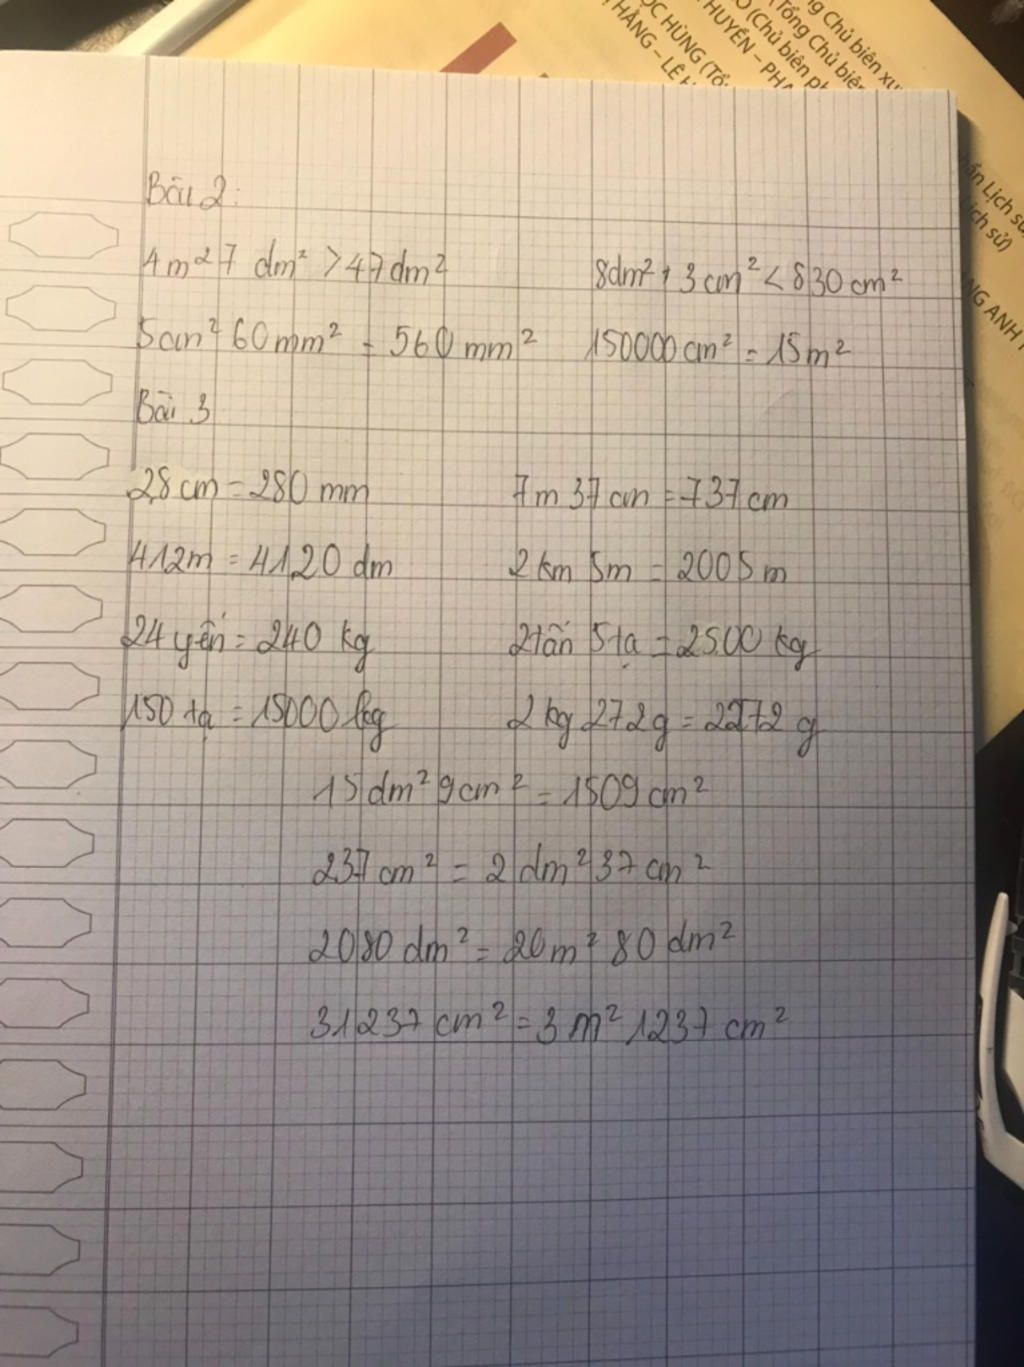 ng Chủ biên xu
(Tổng Chủ biên
O (Chủ biên ph
HUYỀN – PHA
ỌC HÙNG (Tổ
HẰNG – LÊ
ần Lịch sử
ịch sử)
NG ANH
Bài 2:
4m² 7 dm² > 47 dm² 8dm² + 3 cm² < 830 cm²
5cm² 60 mm² = 560 mm² 150000 cm² = 15m²
Bài 3
28 cm = 280 mm 7m 37 cm = 737 cm
412m = 4120 dm 2 km 5m = 2005 m
24 yến = 240 kg 2 tấn 5 tạ = 2500 kg
150 tạ = 15000 kg 2 kg 272g = 2272 g
15 dm² 9cm² = 1509 cm²
237 cm² = 2 dm² 37 cm²
2080 dm² = 20 m² 80 dm²
31237 cm² = 3 m² 1237 cm²